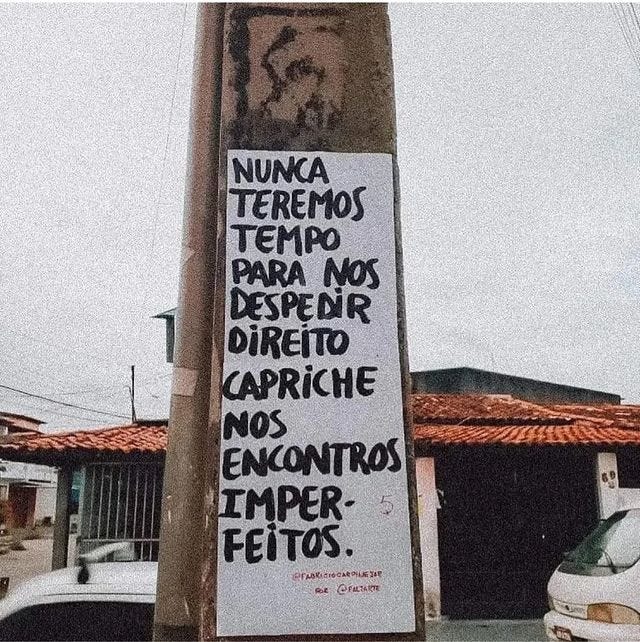 NUNCA
TEREMOS
TEMPO
PARA NOS
DESPEDIR
DIREITO
CAPRICHE
NOS
ENCONTROS
IMPER-
FEITOS.
5
@FABRICIOCARPINEJAR
POR @FALTARTE